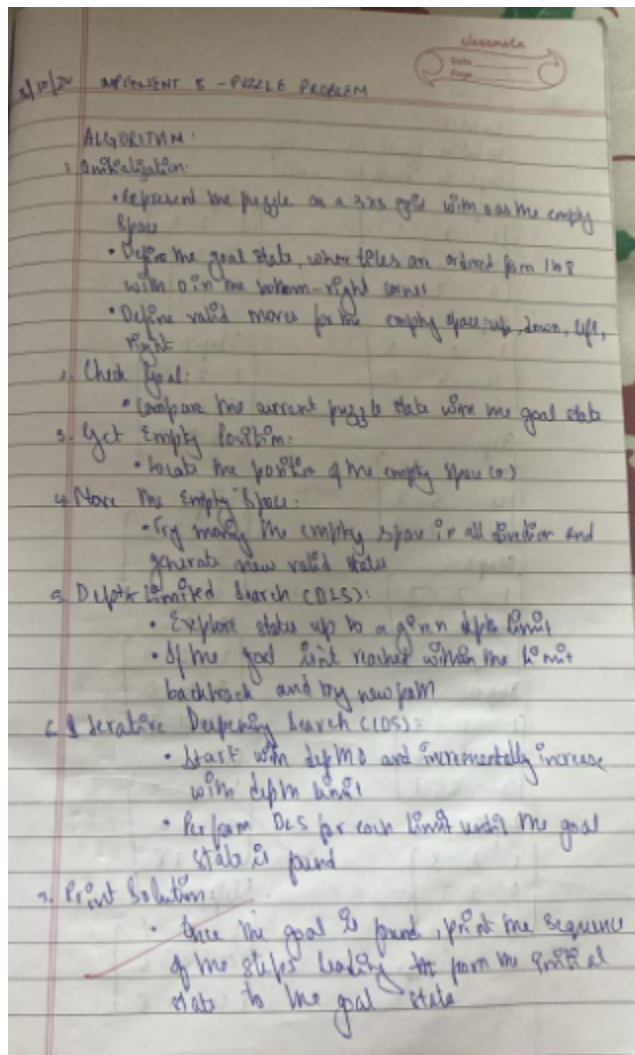 classmate
Date
Page
8/10/24 IMPLEMENT 8 - PUZZLE PROBLEM
ALGORITHM:
1. Initialization:
• Represent the puzzle as a 3x3 grid with 0 as the empty
space
• Define the goal state, where tiles are ordered from 1 to 8
with 0 in the bottom-right corner
• Define valid moves for the empty space: up, down, left,
right
2. Check Goal:
• Compare the current puzzle state with the goal state
3. Get Empty Position:
• Locate the position of the empty space (0)
4. Move the Empty Space:
• Try moving the empty space in all direction and
generate new valid states
5. Depth Limited Search (DLS):
• Explore states up to a given depth limit
• If the goal isn't reached within the limit
backtrack and try new path
6. Iterative Deepening Search (IDS):
• Start with depth 0 and incrementally increase
with depth limit
• Perform DLS for each limit until the goal
state is found
7. Print Solution:
• Once the goal is found, print the sequence
of the steps leading from the initial
state to the goal state